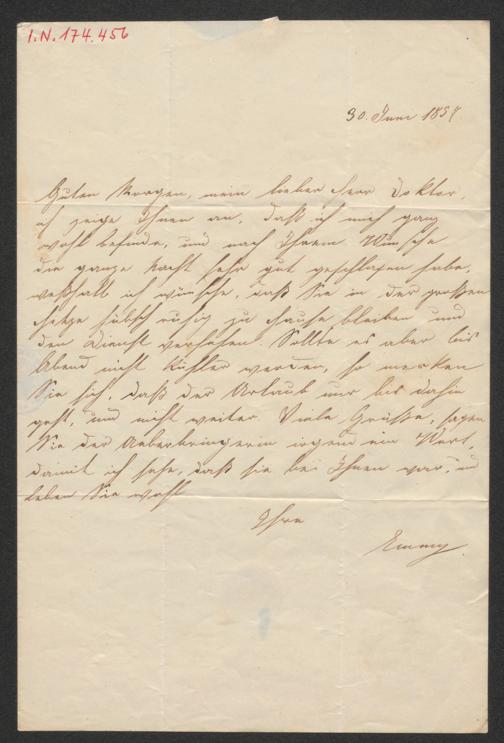 I.N. 174.456
30. Juni 1857
Guten Morgen, mein lieber Herr Doktor,
ich zeige Ihnen an, daß ich mich ganz
wohl befinde, und nach Ihrem Wunsche
die ganze Nacht sehr gut geschlafen habe,
weßhalb ich wünsche, daß Sie in der großen
Hitze hübsch ruhig zu Hause bleiben und
den Dienst versehen. Sollte es aber bis
Abend nicht kühler werden, so merken
Sie sich, daß der Urlaub nur bis dahin
geht, und nicht weiter. Viele Grüße, sagen
Sie der Ueberbringerin irgend ein Wort,
damit ich sehe, daß sie bei Ihnen war, und
leben Sie wohl
Ihre
Emmy.